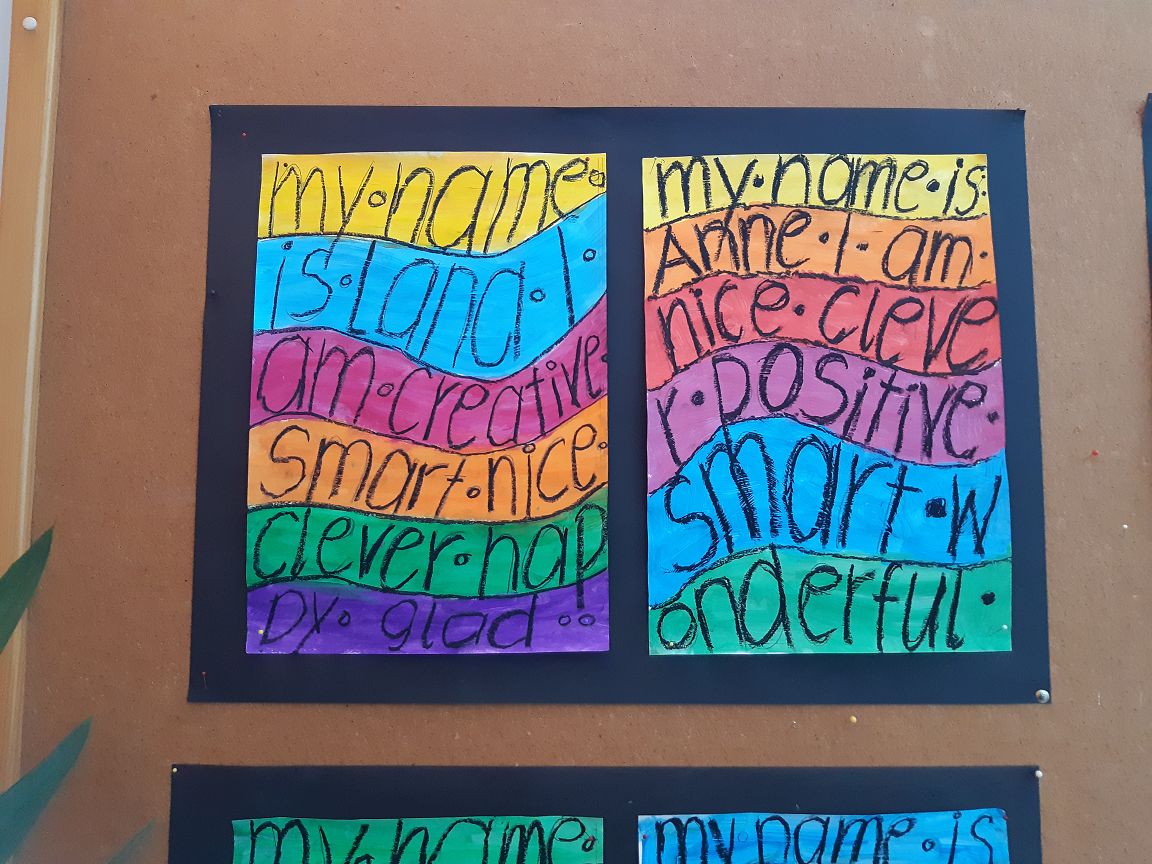 my·name·
is·Lana·I·
am·creative·
smart·nice·
clever·hap
py· glad··
my·name·is·
Anne·I·am·
nice·cleve
r·positive·
smart·w
onderful·
my·name·
my name·is